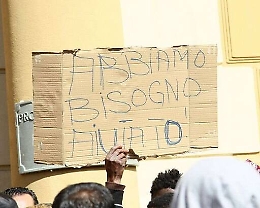 ABBIAMO
BISOGNO
AIUTATO